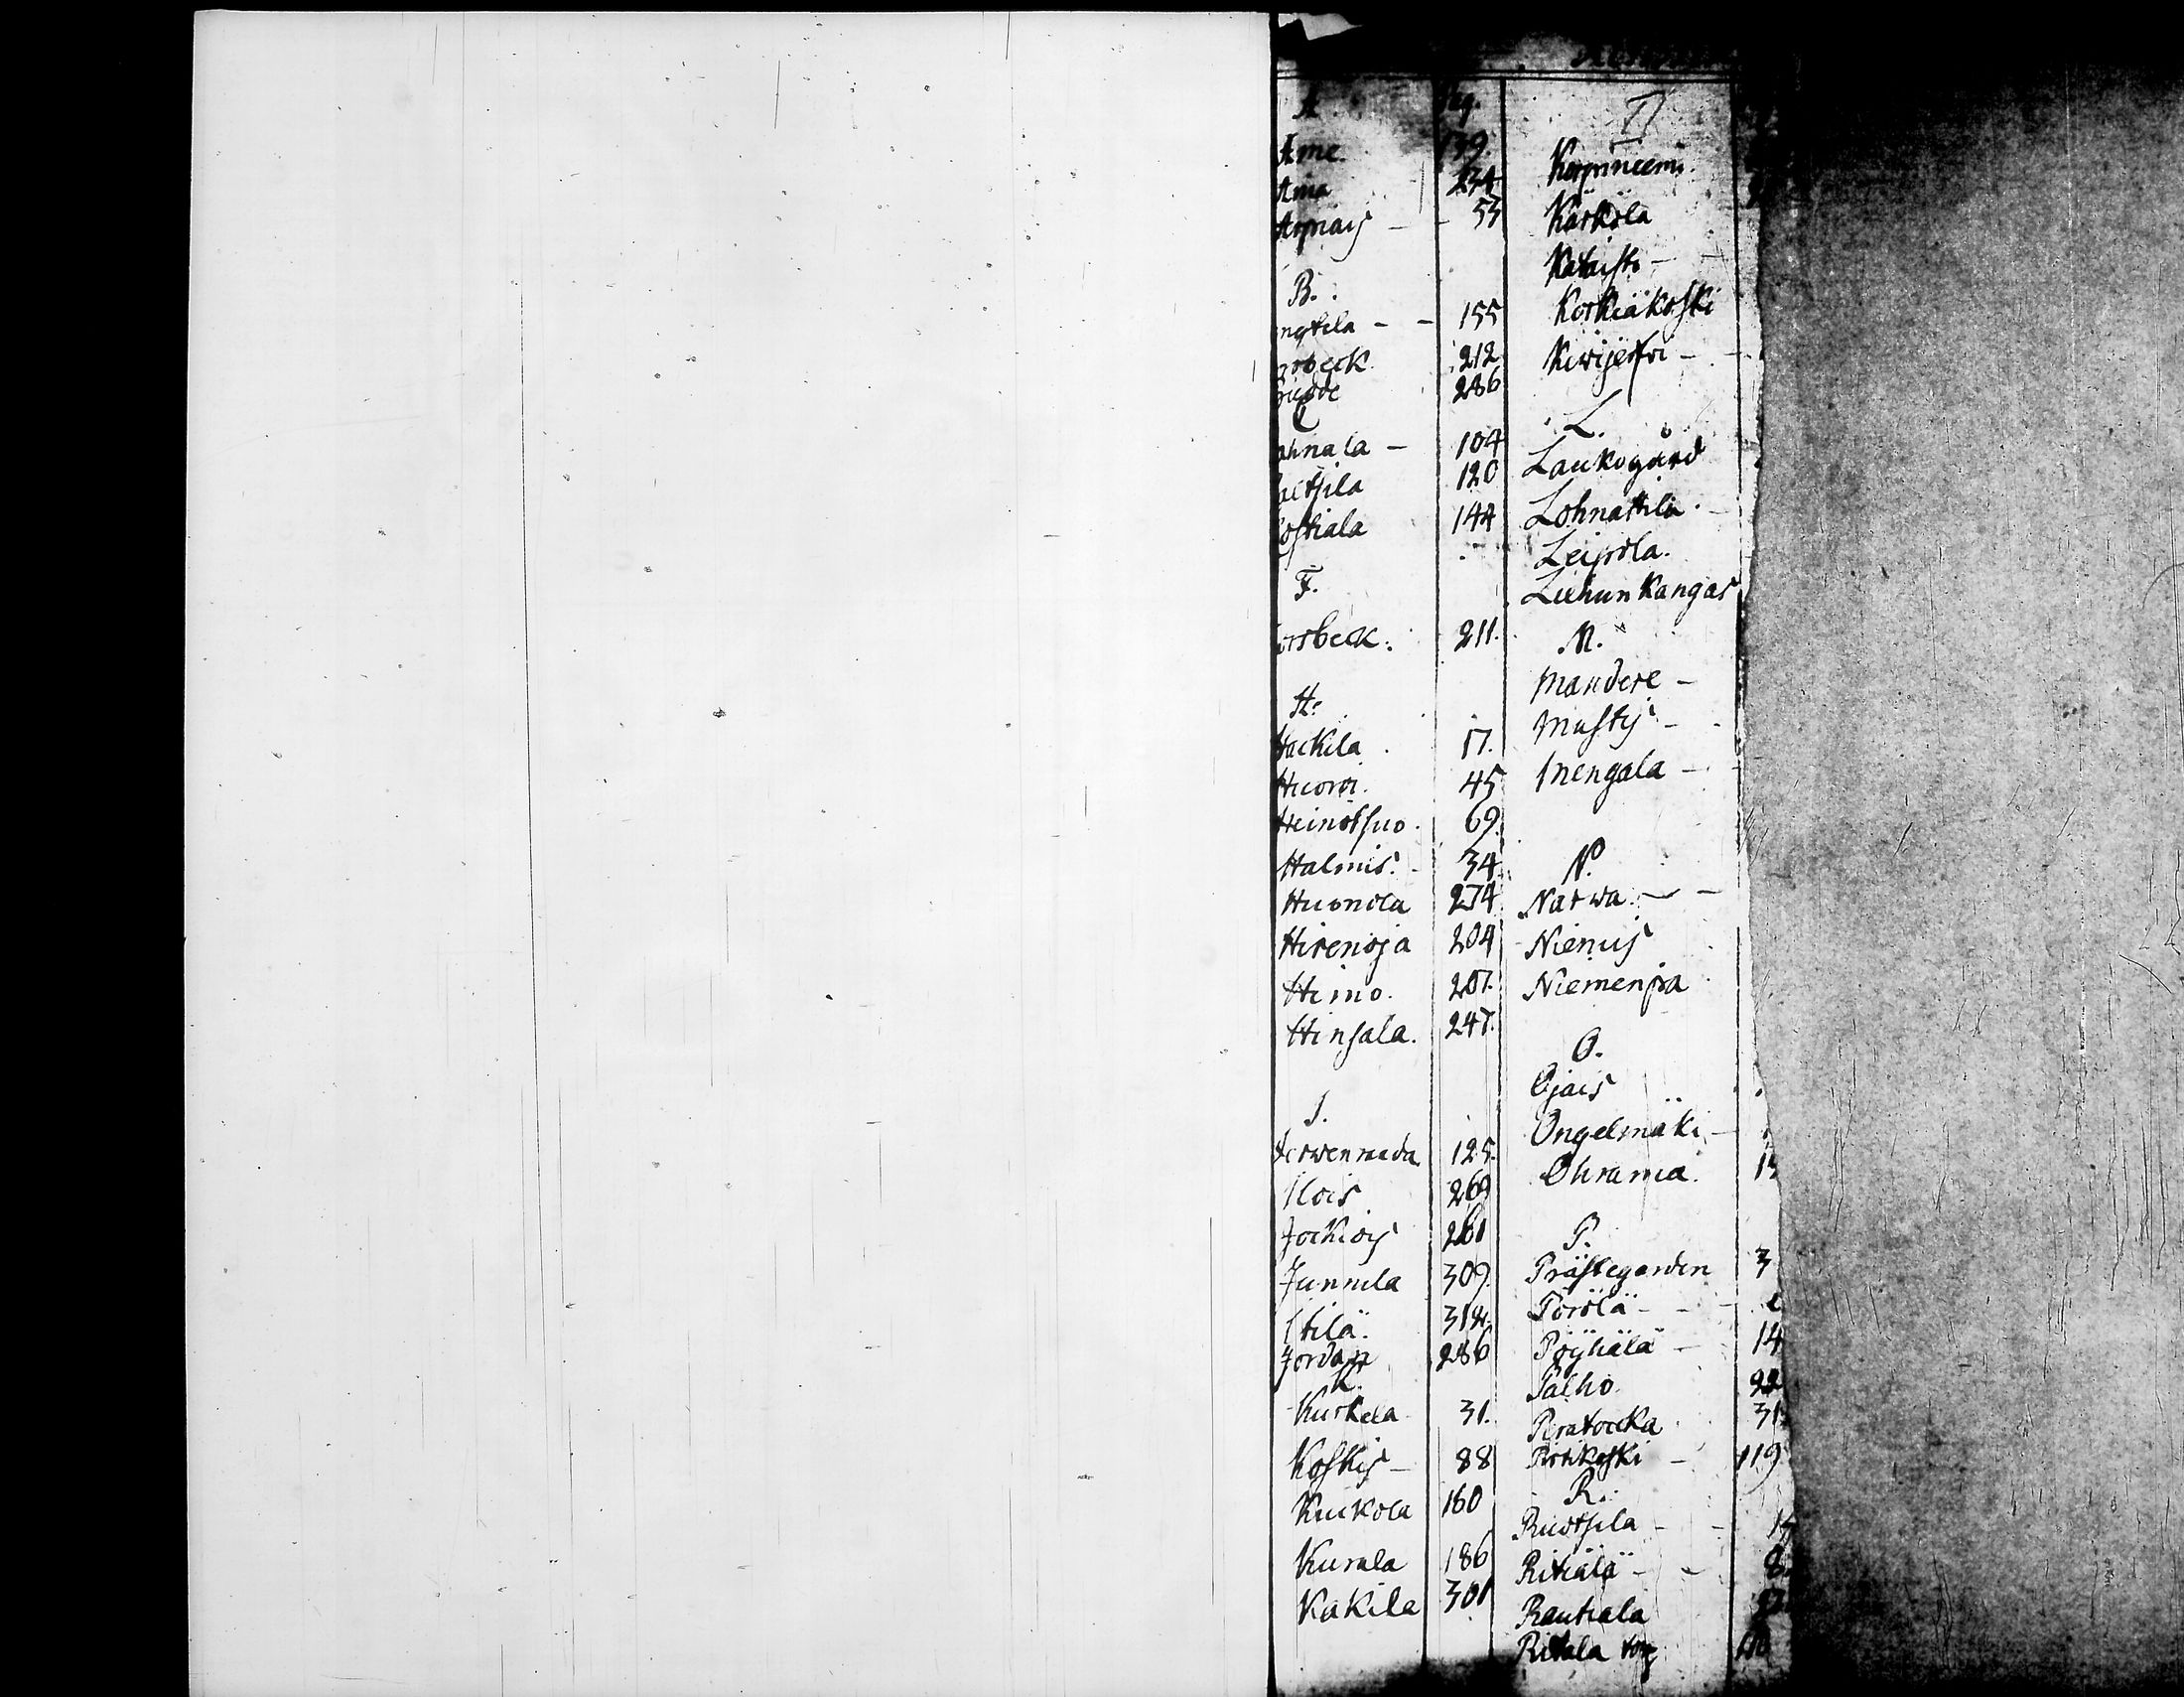 A. Pag.
Ame. 139.
Ania 234
Arpiais - - 53
B.
ngtila - - 155
orbeck 212
286
C
ahnala - 104
altsila 120
Coskiala 144
F.
orsbeck. 211.
H.
Hackila 17.
Huovi. 45
Heinossuo. 69.
Halmis. - 34
Huonola 274
Hirenoja 204
Heimo. 207.
Hinsala. 247.
I.
Jerwenranda 125.
Ilois 269
Jockiois 261
Junnila 309.
Itilä. 314.
Jordan 286
K.
Kurkela 31.
Koskis - 88
Kuckola 160
Kurala 186
Kakila 301
Korpineemi.
Kärköla
Kataisto -
Korkiäkoski
Kiwijerfvi -
L.
Laukogård
Lohnattila.
Leipola.
Liehunkangas
M.
Mandere -
Mustis -
Mengala -
N.
Narwa - -
Niemis
Niemenpä
O.
Ojais
Ongelmäki -
Ohrania.
P.
Prästegården 3
Pörölä - -
Pöyhälä - 14
Palho. 22
Peratocka 31
Pirtikoski - 119
R.
Ruotsila - -
Ritiälä - - 8
Rautiala
Ritala torp